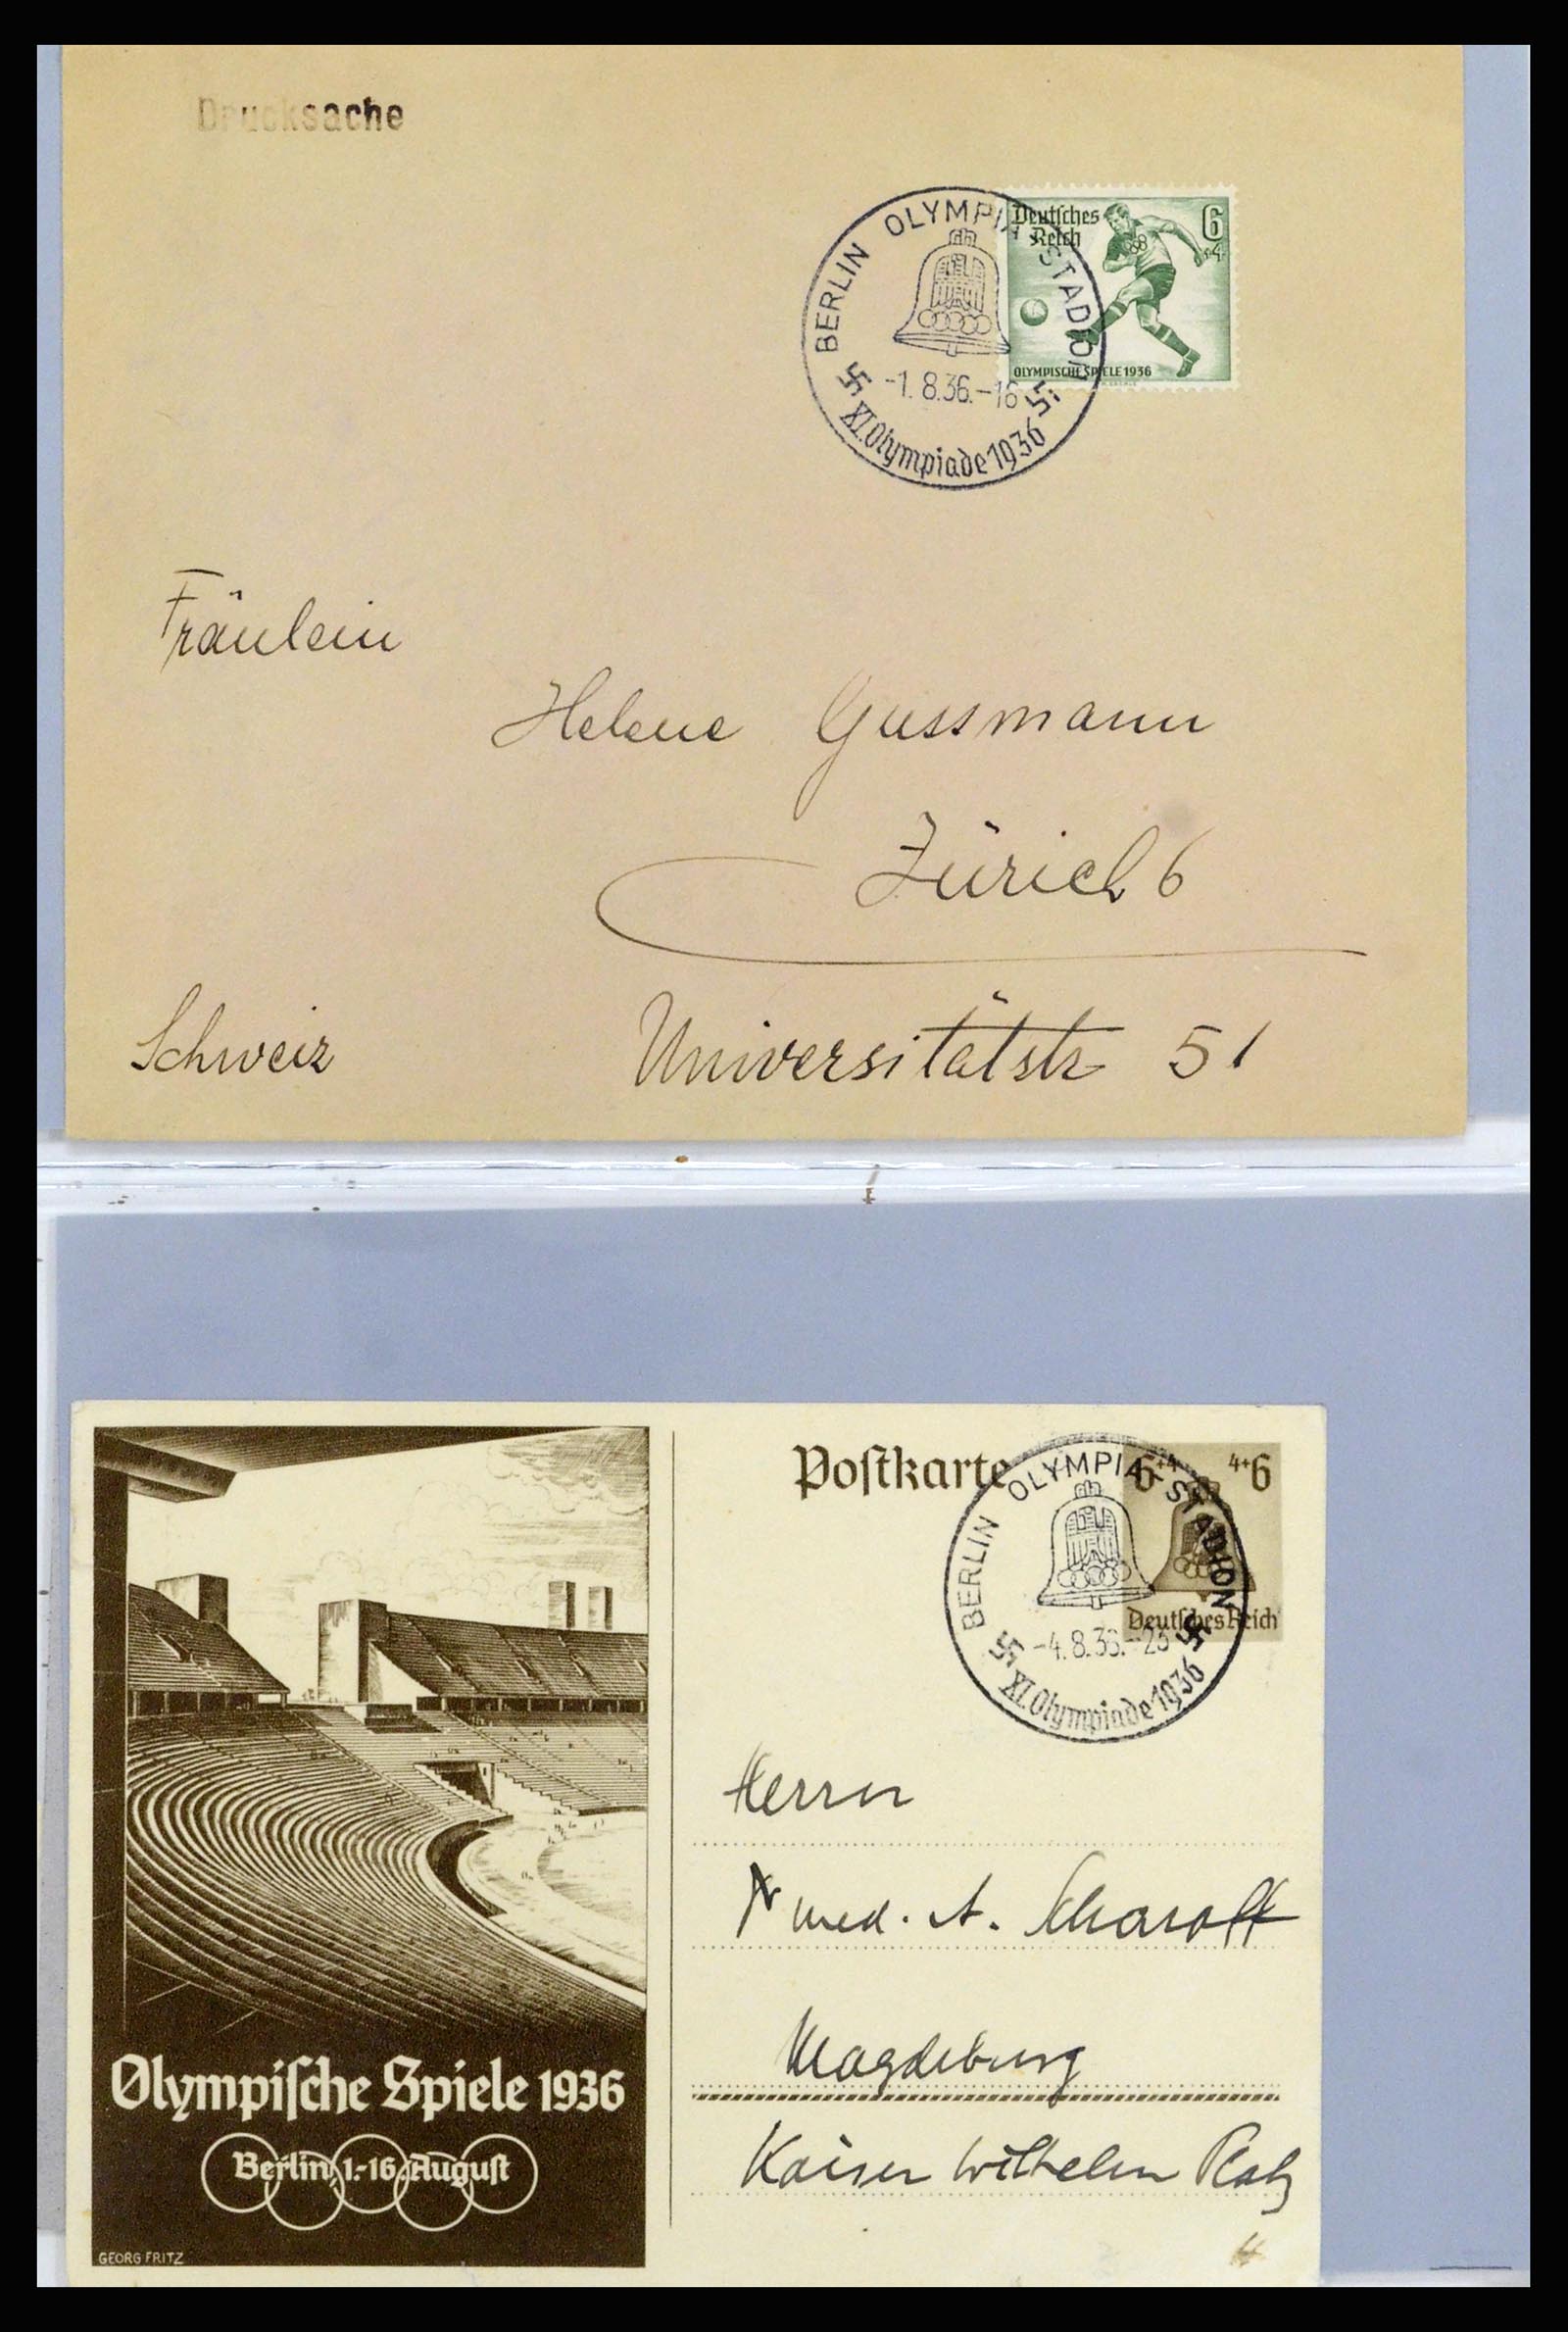 Drucksache
BERLIN OLYMPIA-STADION
-1.8.36.-16
XI.Olympiade 1936
Deutsches
Reich
6
+4
OLYMPISCHE SPIELE 1936
Fräulein
Helene Gussmann
Zürich 6
Schweiz Universitätstr 51
Postkarte
6+4 4+6
Deutsches Reich
BERLIN OLYMPIA-STADION
-4.8.36.-23
XI.Olympiade 1936
Herrn
med. A. Scharoff
Magdeburg
Kaiser Wilhelm Platz
Olympische Spiele 1936
Berlin, 1.-16. August
GEORG FRITZ